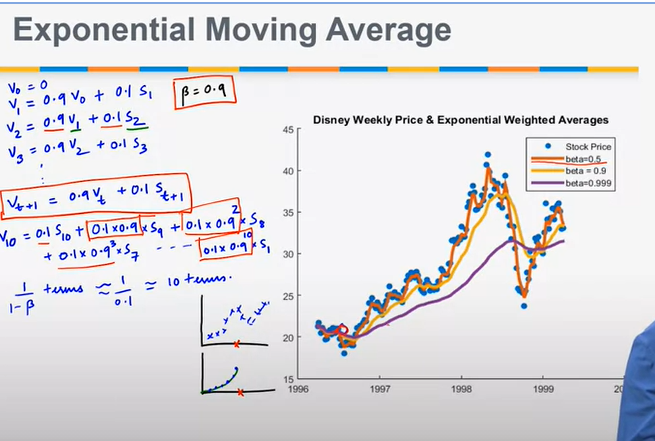 Exponential Moving Average
V₀ = 0
V₁ = 0.9 V₀ + 0.1 S₁
β = 0.9
V₂ = 0.9 V₁ + 0.1 S₂
V₃ = 0.9 V₂ + 0.1 S₃
⋮
V_{t+1} = 0.9 V_t + 0.1 S_{t+1}
V₁₀ = 0.1 S₁₀ + 0.1×0.9 × S₉ + 0.1×0.9² × S₈
+ 0.1×0.9³ × S₇ - - - - 0.1×0.9¹⁰ × S₁
1/(1-β) terms ≈ 1/0.1 ≈ 10 terms.
Disney Weekly Price & Exponential Weighted Averages
Stock Price
beta=0.5
beta = 0.9
beta=0.999
45
40
35
30
25
20
15
1996
1997
1998
1999
20